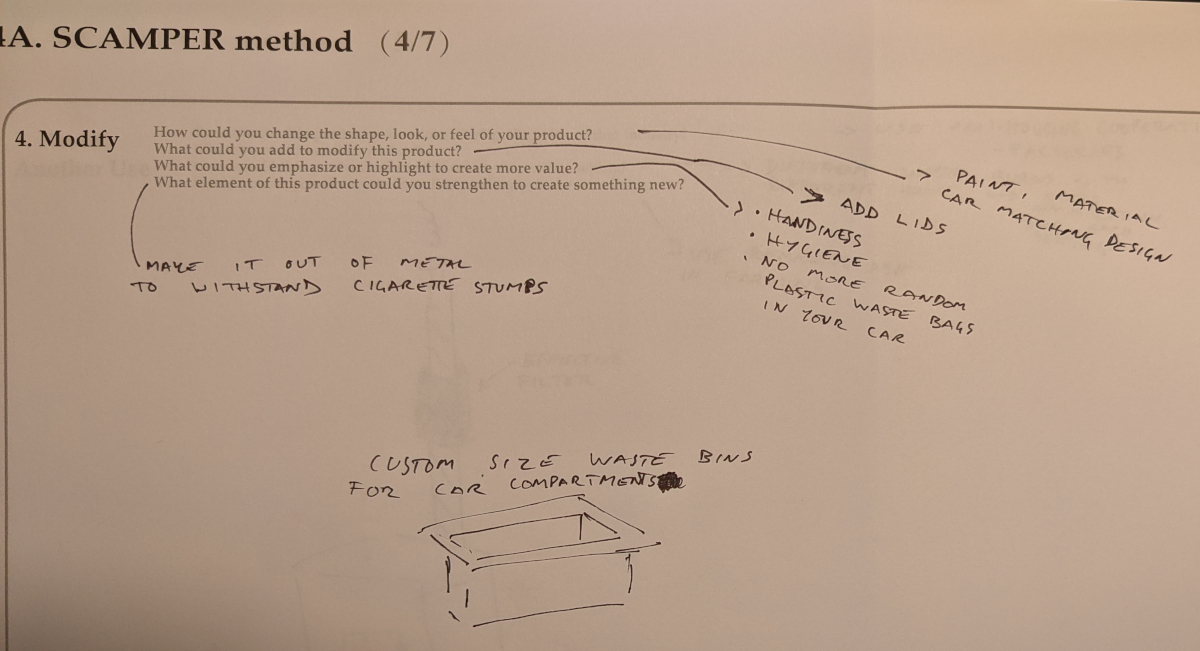 4A. SCAMPER method (4/7)
4. Modify
How could you change the shape, look, or feel of your product?
What could you add to modify this product?
What could you emphasize or highlight to create more value?
What element of this product could you strengthen to create something new?
> PAINT, MATERIAL
CAR MATCHING DESIGN
ADD LIDS
• HANDINESS
• HYGIENE
• NO MORE RANDOM
PLASTIC WASTE BAGS
IN YOUR CAR
MAKE IT OUT OF METAL
TO WITHSTAND CIGARETTE STUMPS
CUSTOM SIZE WASTE BINS
FOR CAR COMPARTMENTS
EFFECTIVE
FILTER